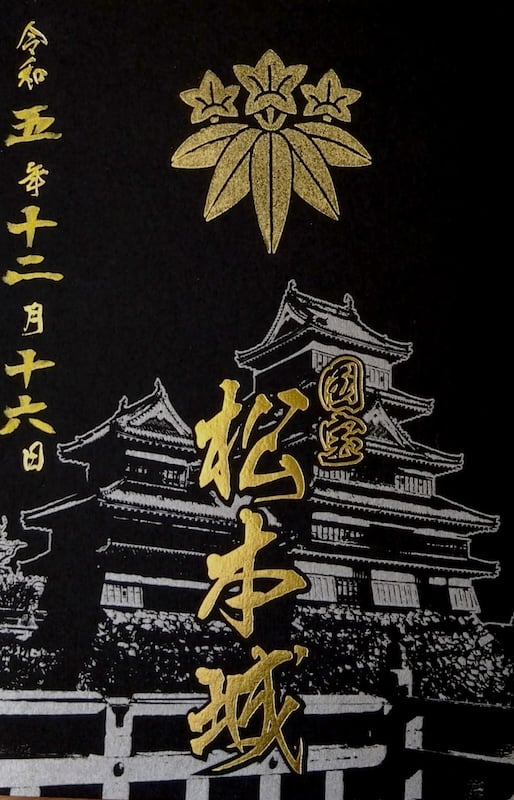 国宝
松本城
令和五年十二月十六日